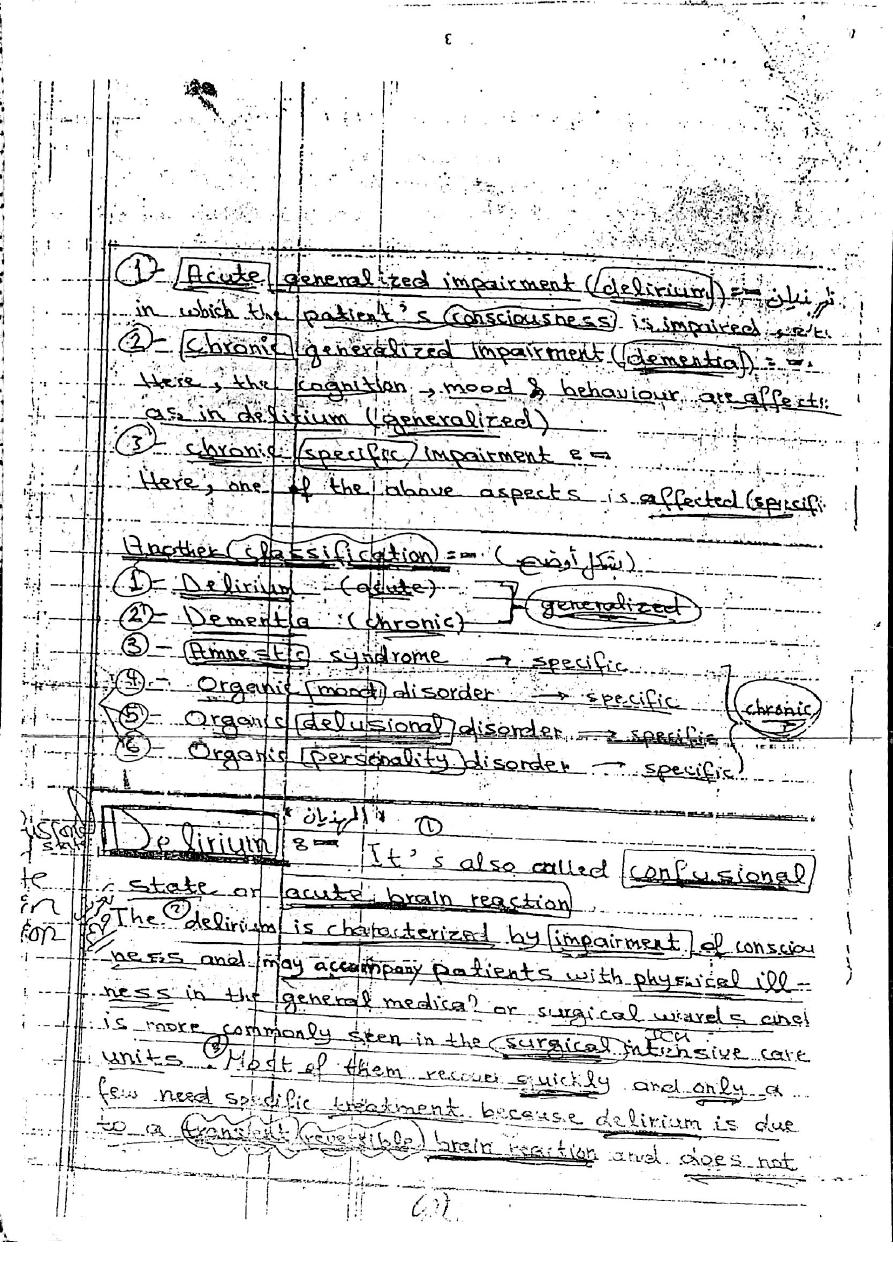 ٣
① - Acute generalized impairment (delirium) :-
in which the patient's consciousness is impaired, etc.
② - Chronic generalized impairment (dementia) :-
Here, the cognition, mood & behaviour are affects
as in delirium (generalized)
③ - chronic (specific) impairment :-
Here, one of the above aspects is affected (specifi
Another (classification) :- (بشكل أوضح)
① - Delirium : (acute)
② - Dementia : (chronic)
generalized
③ - Amnestic syndrome → specific
④ - Organic mood disorder → specific
⑤ - Organic delusional disorder → specific
⑥ - Organic personality disorder → specific
chronic
Delirium :- * الهذيان *
① It's also called confusional
state or acute brain reaction
The ② delirium is characterized by impairment of consciou
ness and may accompany patients with physical ill-
ness in the general medical or surgical wards and
is more commonly seen in the surgical intensive care
ICU
units. ③ Most of them recover quickly and only a
few need specific treatment because delirium is due
to a transient (reversible) brain reaction and does not